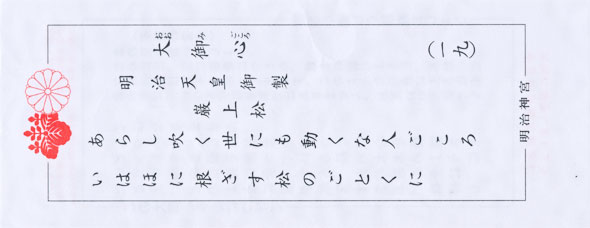 (一九)
おお み ごころ
大御心
明治天皇御製
巌上松
あらし吹く世にも動くな人ごころ
いはほに根ざす松のごとくに
明治神宮